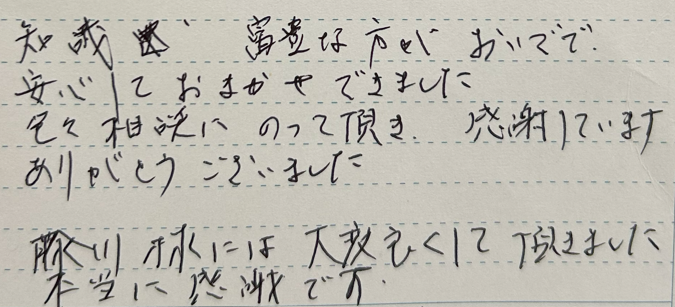 知識が 富貴な方がおいでで.
安心しておまかせできました
色々相談にのって頂き. 感謝しています
ありがとうございました
川 様には大変良くして頂きました
本当に感謝です.